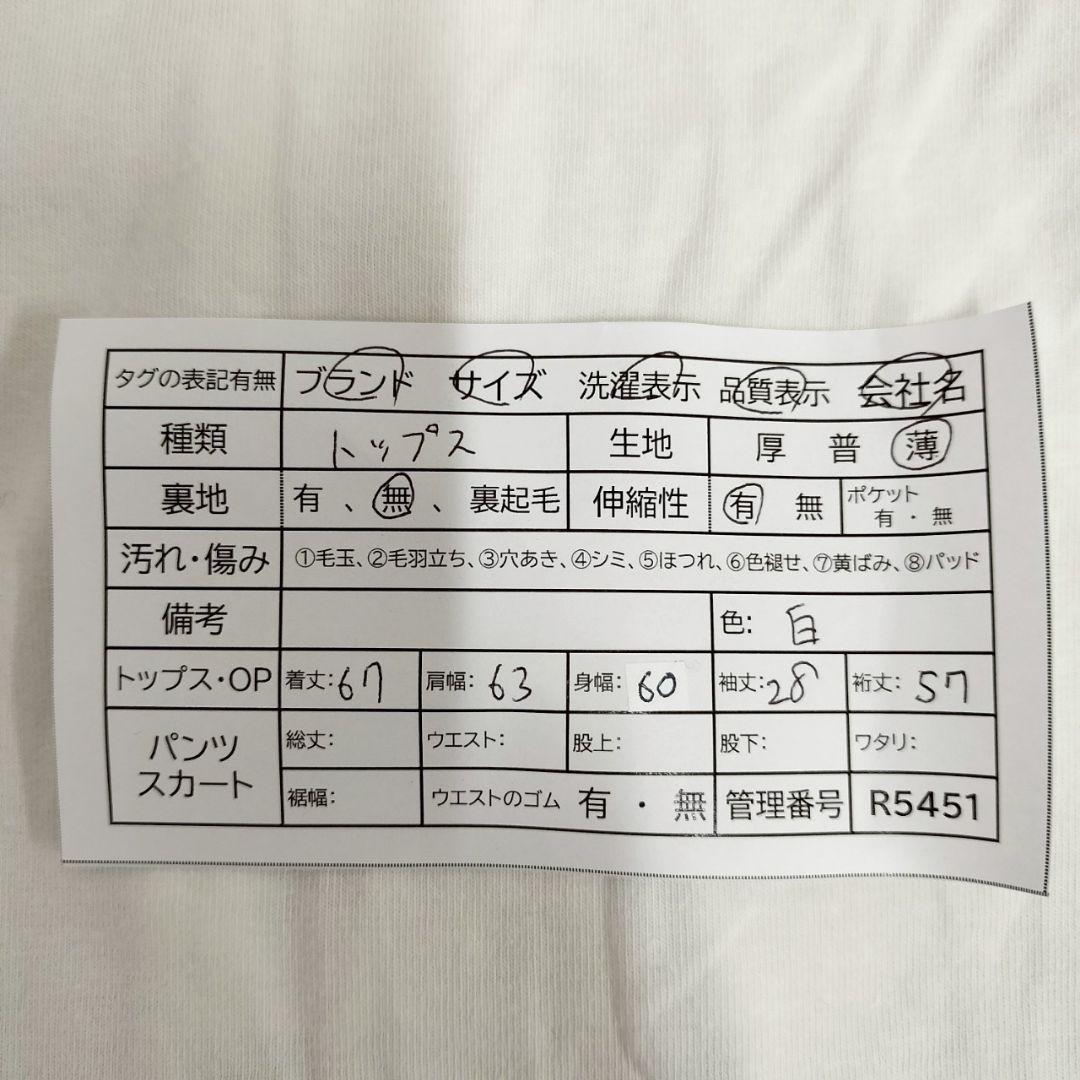 タグの表記有無 ブランド サイズ 洗濯表示 品質表示 会社名
種類 トップス 生地 厚 普 薄
裏地 有 、 無 、 裏起毛 伸縮性 有 無 ポケット 有 ・ 無
汚れ・傷み ①毛玉、②毛羽立ち、③穴あき、④シミ、⑤ほつれ、⑥色褪せ、⑦黄ばみ、⑧パッド
備考 色: 白
トップス・OP 着丈: 67 肩幅: 63 身幅: 60 袖丈: 28 裄丈: 57
パンツ スカート 総丈: ウエスト: 股上: 股下: ワタリ:
裾幅: ウエストのゴム 有 ・ 無 管理番号 R5451